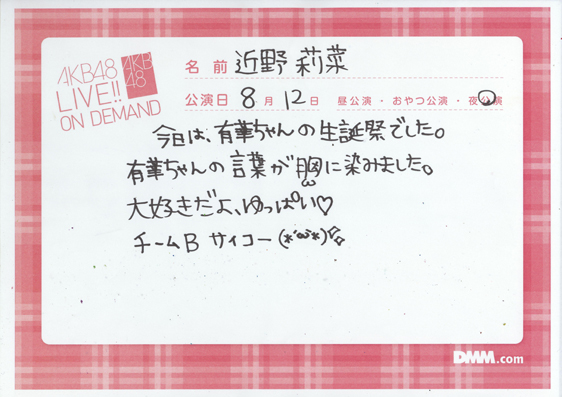 AKB48
LIVE!!
ON DEMAND
AKB
48
名前 近野 莉菜
公演日 8月 12日 昼公演・おやつ公演・夜公演
今日は、有華ちゃんの生誕祭でした。
有華ちゃんの言葉が胸に染みました。
大好きだよ、ゆっぱい♡
チームB サイコー(*'ω'*)☆
DMM.com